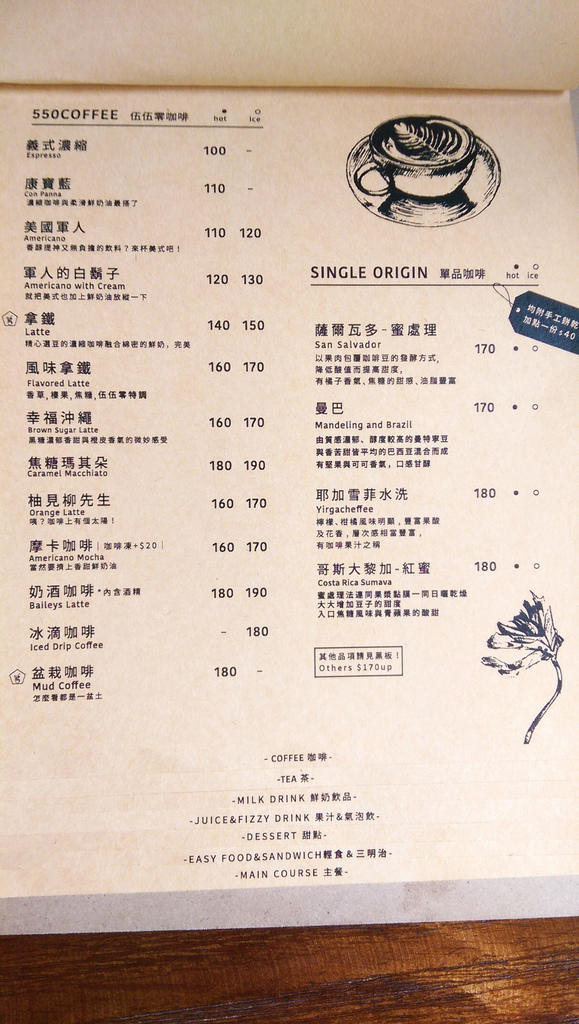 550COFFEE 伍伍零咖啡 hot ice
義式濃縮 100 –
Espresso
康寶藍 110 –
Con Panna
濃縮咖啡與柔滑鮮奶油最搭了
美國軍人 110 120
Americano
香醇提神又無負擔的飲料？來杯美式吧！
軍人的白鬍子 120 130
Americano with Cream
就把美式也加上鮮奶油放縱一下
拿鐵 140 150
Latte
精心選豆的濃縮咖啡融合綿密的鮮奶，完美
風味拿鐵 160 170
Flavored Latte
香草,榛果,焦糖,伍伍零特調
幸福沖繩 160 170
Brown Sugar Latte
黑糖濃郁香甜與橙皮香氣的微妙感受
焦糖瑪其朵 180 190
Caramel Macchiato
柚見柳先生 160 170
Orange Latte
咦？咖啡上有個太陽！
摩卡咖啡 | 咖啡凍+$20 | 160 170
Americano Mocha
當然要擠上香甜鮮奶油
奶酒咖啡 *內含酒精 180 190
Baileys Latte
冰滴咖啡 – 180
Iced Drip Coffee
盆栽咖啡 180 –
Mud Coffee
怎麼看都是一盆土
SINGLE ORIGIN 單品咖啡 hot ice
均附手工餅乾
加點一份$40
薩爾瓦多-蜜處理
San Salvador 170
以果肉包覆咖啡豆的發酵方式,
降低酸值而提高甜度,
有橘子香氣、焦糖的甜感、油脂豐富
曼巴 170
Mandeling and Brazil
由質感濃郁、醇度較高的曼特寧豆
與香苦甜皆平均的巴西豆混合而成
有堅果與可可香氣，口感甘醇
耶加雪菲水洗 180
Yirgacheffee
檸檬、柑橘風味明顯,豐富果酸
及花香,層次感相當豐富,
有咖啡果汁之稱
哥斯大黎加-紅蜜 180
Costa Rica Sumava
蜜處理法連同果漿黏膜一同日曬乾燥
大大增加豆子的甜度
入口焦糖風味與青蘋果的酸甜
其他品項請見黑板！
Others $170up
- COFFEE 咖啡-
-TEA 茶-
-MILK DRINK 鮮奶飲品-
-JUICE&FIZZY DRINK 果汁&氣泡飲-
-DESSERT 甜點-
-EASY FOOD&SANDWICH輕食&三明治-
-MAIN COURSE 主餐-